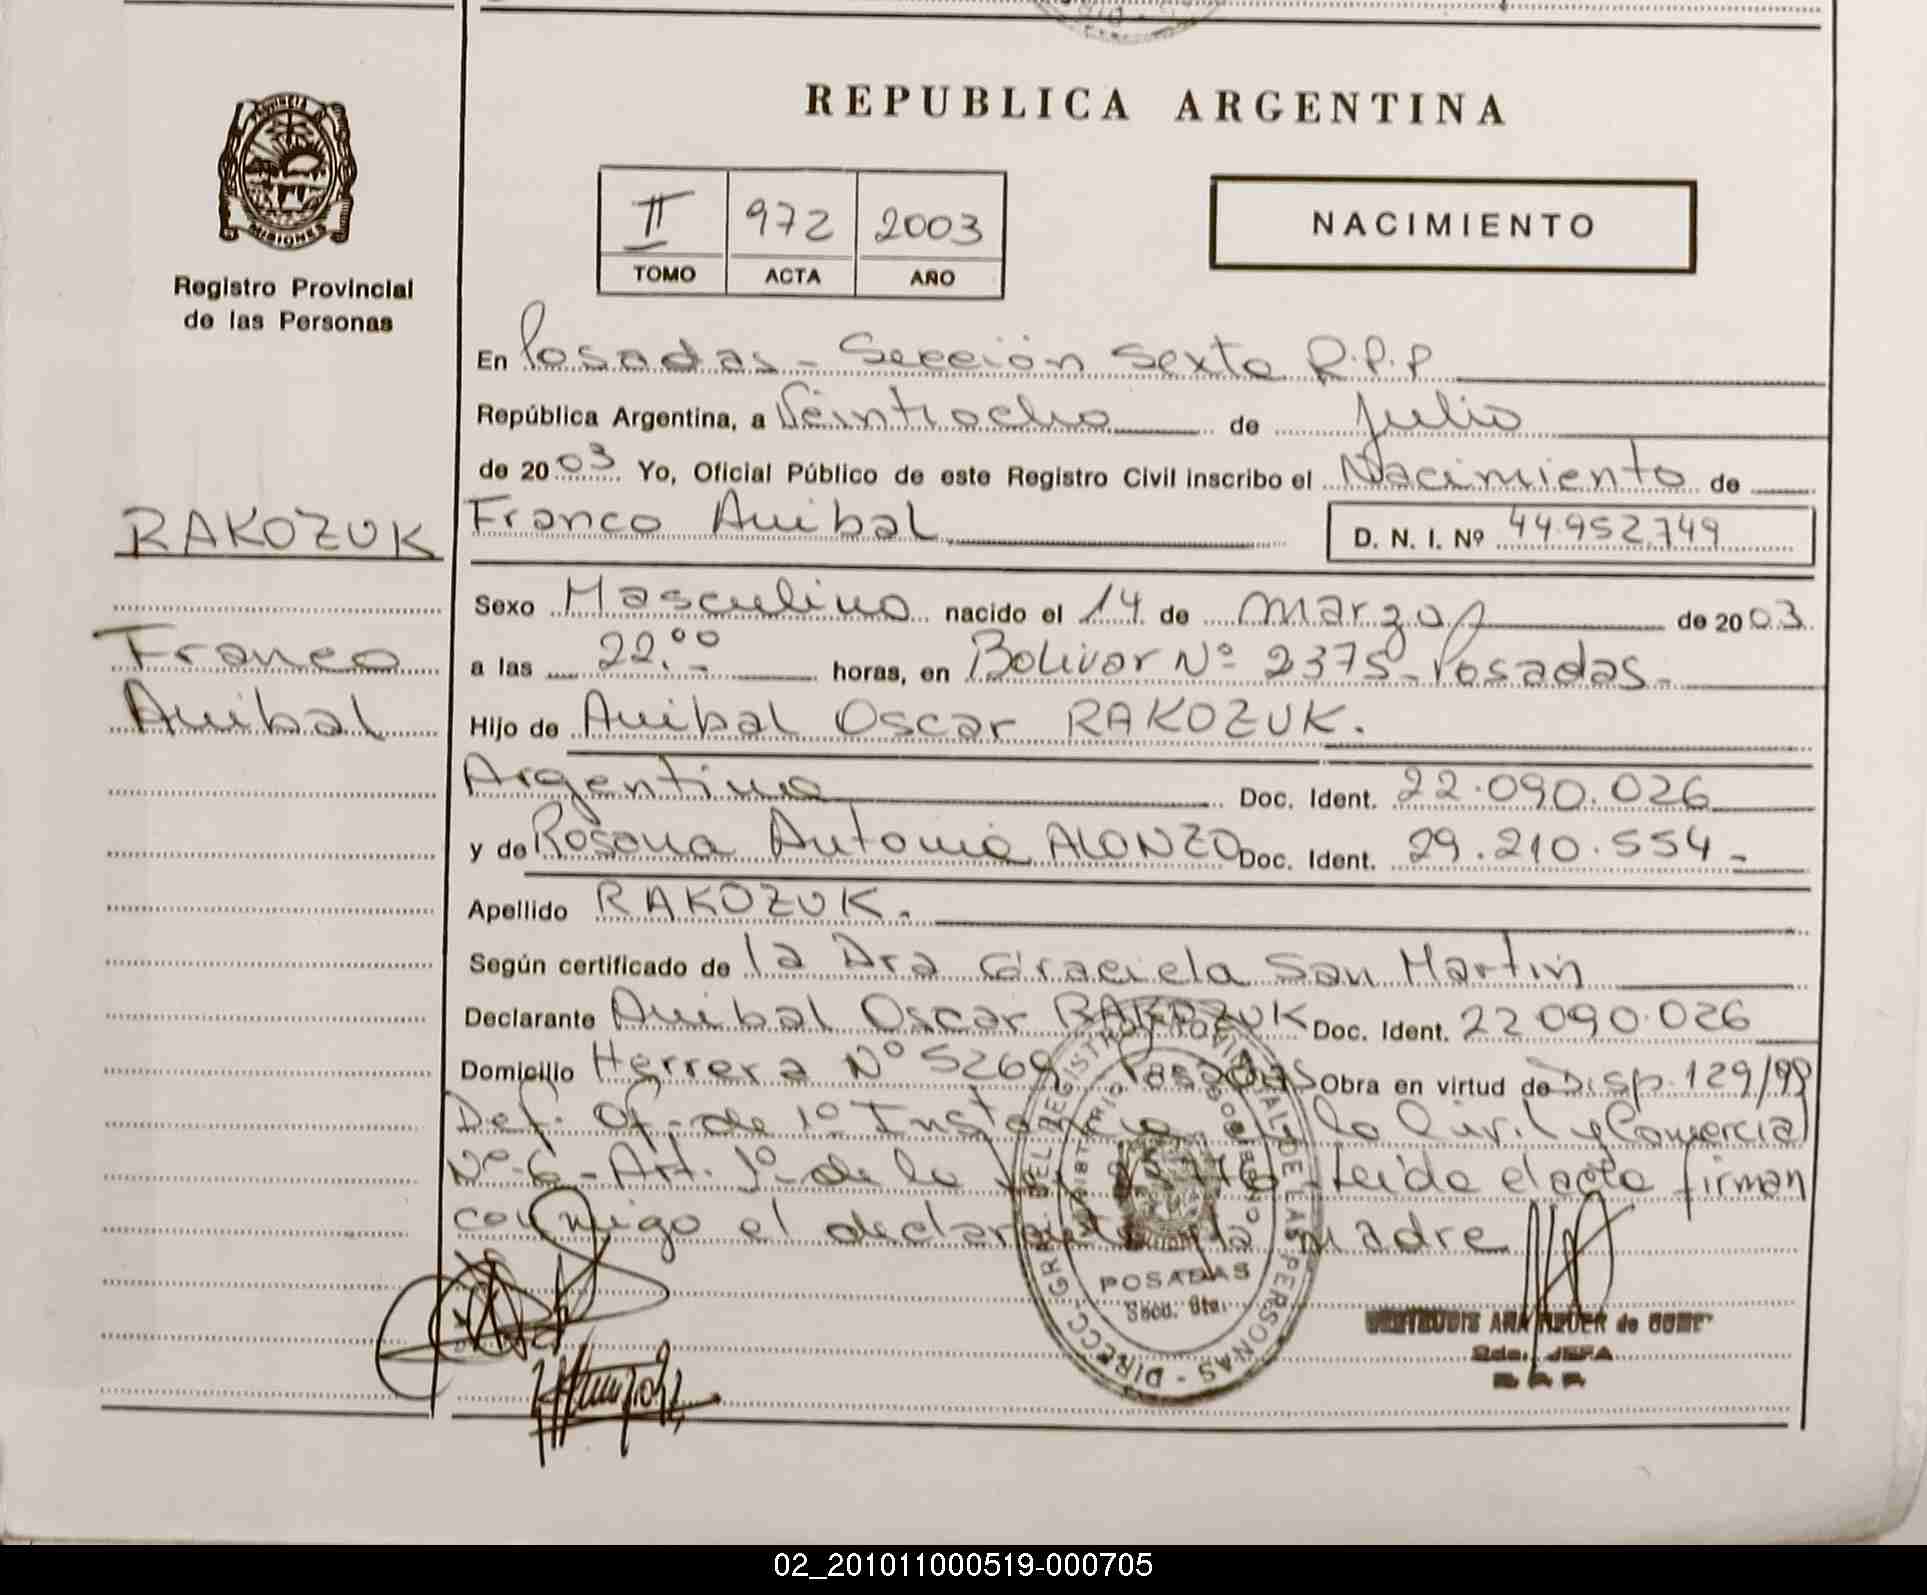 REPUBLICA ARGENTINA
PROVINCIA
MISIONES
Registro Provincial
de las Personas
II 972 2003
TOMO ACTA AÑO
NACIMIENTO
En Posadas - Sección Sexta R.P.P
República Argentina, a Veintiocho de Julio
de 2003 Yo, Oficial Público de este Registro Civil inscribo el Nacimiento de
RAKOZUK
Franco Anibal
D. N. I. Nº 44.952.749
Sexo Masculino nacido el 14 de Marzo de 2003
Franco
Anibal
a las 22.00 horas, en Bolivar Nº 2375 - Posadas.
Hijo de Anibal Oscar RAKOZUK.
Argentino Doc. Ident. 22.090.026
y de Rosana Antonia ALONZO Doc. Ident. 29.210.554 -
Apellido RAKOZUK.
Según certificado de la Dra Graciela San Martin
Declarante Anibal Oscar RAKOZUK Doc. Ident. 22 090.026
Domicilio Herrera Nº 5269 Posadas Obra en virtud de Disp. 129/99
Def. Of. de 1º Instancia lo Civil y Comercial
Nº 6 - Art. 1º de la Leida el acta firman
conmigo el declarante y la madre
DIRECC. GRAL. DEL REGISTRO PROVINCIAL DE LAS PERSONAS
MINISTERIO GOBIERNO
POSADAS
Secc. 6ta.
JEFA
02_201011000519-000705